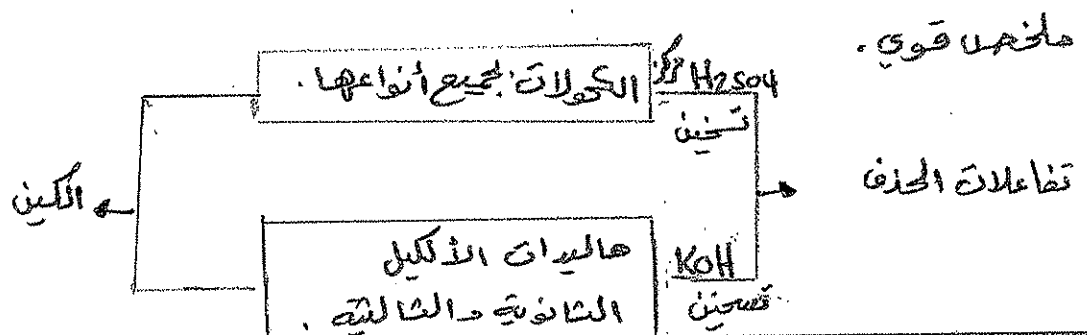 ملخص قوي.
الكحولات بجميع أنواعها.
H2SO4 مركز
تسخين
تفاعلات الحذف
ألكين
هاليدات الألكيل
الثانوية والثالثية.
KOH
تسخين